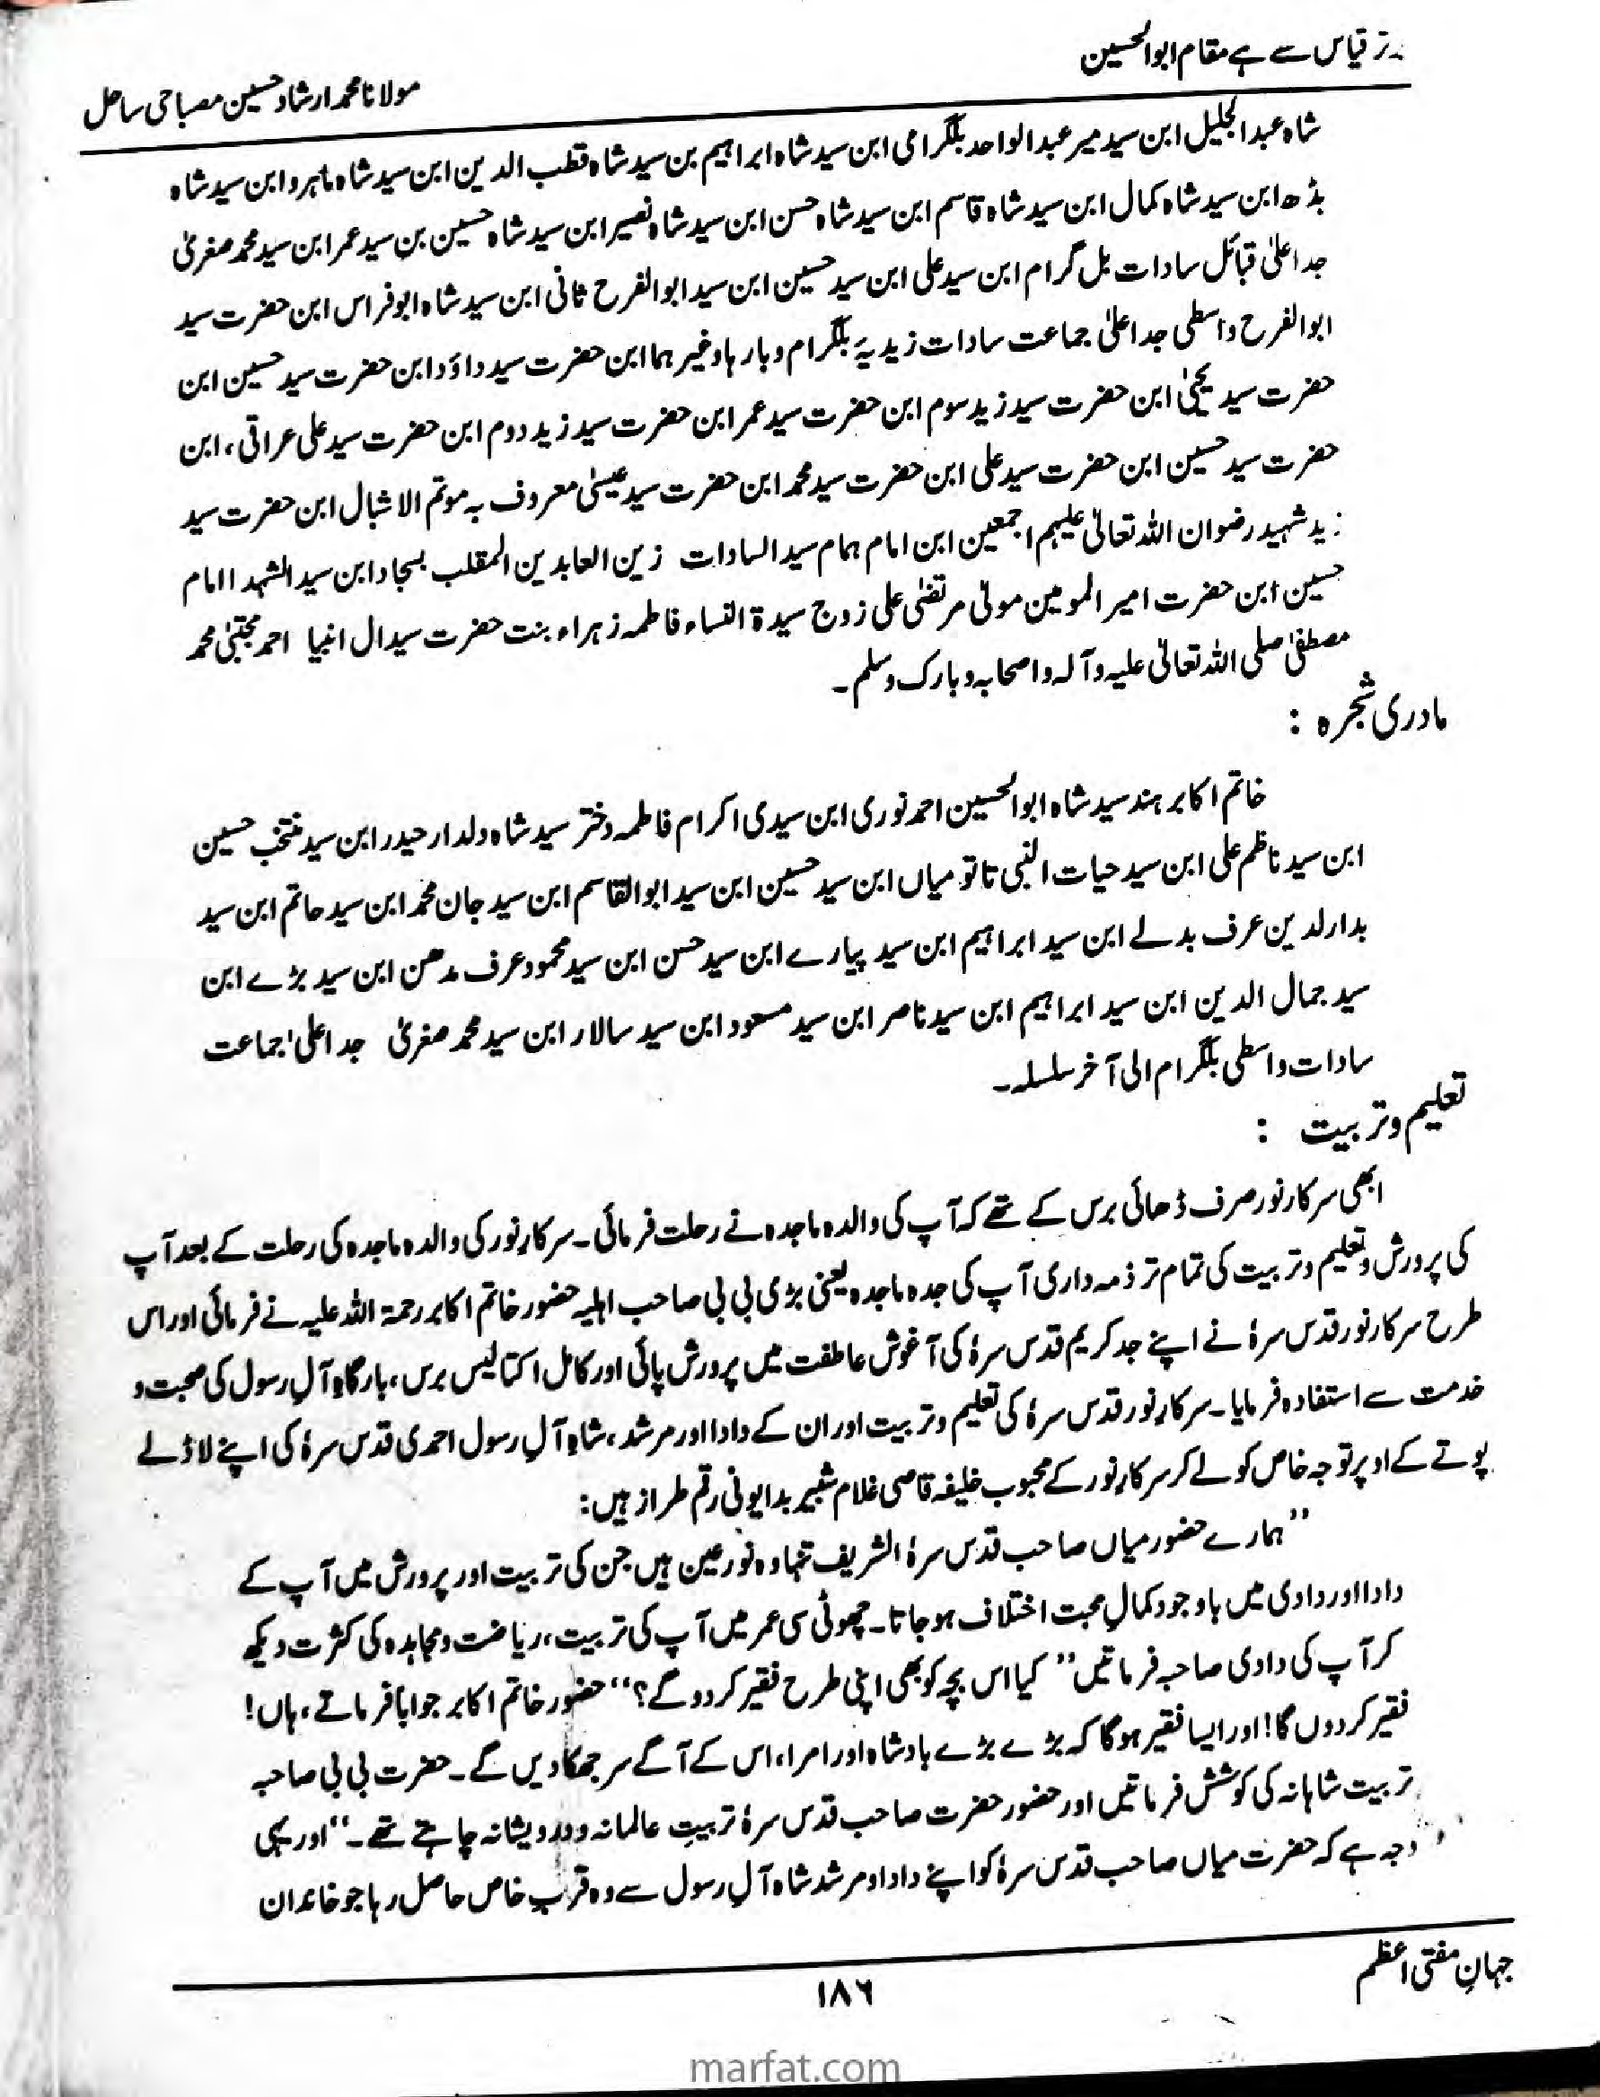 برتر قیاس سے ہے مقام ابوالحسین
مولانا محمد ارشاد حسین مصباحی ساحل
شاہ عبدالجلیل ابن سید میر عبدالواحد بلگرامی ابن سید شاہ ابراہیم بن سید شاہ قطب الدین ابن سید شاہ ماہرو ابن سید شاہ
بڈھ ابن سید شاہ کمال ابن سید شاہ قاسم ابن سید شاہ حسن ابن سید شاہ نصیر ابن سید شاہ حسین بن سید عمر ابن سید محمد صغریٰ
جد اعلیٰ قبائل سادات بل گرام ابن سید علی ابن سید حسین ابن سید ابوالفرح ثانی ابن سید شاہ ابوفراس ابن حضرت سید
ابوالفرح واسطی جد اعلیٰ جماعت سادات زیدیۂ بلگرام وبارہا وغیرہما ابن حضرت سید داؤد ابن حضرت سید حسین ابن
حضرت سید یحییٰ ابن حضرت سید زید سوم ابن حضرت سید عمر ابن حضرت سید زید دوم ابن حضرت سید علی عراقی، ابن
حضرت سید حسین ابن حضرت سید علی ابن حضرت سید محمد ابن حضرت سید عیسیٰ معروف بہ موتم الاشبال ابن حضرت سید
زید شہید رضوان اللہ تعالیٰ علیہم اجمعین ابن امام ہمام سید السادات زین العابدین المقلب بسجاد ابن سید الشہدا امام
حسین ابن حضرت امیر المومین مولیٰ مرتضیٰ علی زوج سیدۃ النساء فاطمہ زہراء بنت حضرت سید ال انبیا احمد مجتبیٰ محمد
مصطفیٰ صلی اللہ تعالیٰ علیہ وآلہ واصحابہ وبارک وسلم۔
مادری شجرہ :
خاتم اکابر ہند سید شاہ ابوالحسین احمد نوری ابن سیدی اکرام فاطمہ دختر سید شاہ دلدار حیدر ابن سید منتخب حسین
ابن سید ناظم علی ابن سید حیات النبی تاتو میاں ابن سید حسین ابن سید ابوالقاسم ابن سید جان محمد ابن سید حاتم ابن سید
بدارلدین عرف بدلے ابن سید ابراہیم ابن سید پیارے ابن سید حسن ابن سید محمود عرف مدھن ابن سید بڑے ابن
سید جمال الدین ابن سید ابراہیم ابن سید ناصر ابن سید مسعود ابن سید سالار ابن سید محمد صغریٰ جد اعلیٰ جماعت
سادات واسطی بلگرام الی آخر سلسلہ۔
تعلیم وتربیت :
ابھی سرکار نور صرف ڈھائی برس کے تھے کہ آپ کی والدہ ماجدہ نے رحلت فرمائی۔ سرکار نور کی والدہ ماجدہ کی رحلت کے بعد آپ
کی پرورش وتعلیم وتربیت کی تمام تر ذمہ داری آپ کی جدہ ماجدہ یعنی بڑی بی بی صاحب اہلیہ حضور خاتم اکابر رحمۃ اللہ علیہ نے فرمائی اور اس
طرح سرکار نور قدس سرۂ نے اپنے جد کریم قدس سرۂ کی آغوش عاطفت میں پرورش پائی اور کامل اکتالیس برس، بارگاہِ آلِ رسول کی صحبت و
خدمت سے استفادہ فرمایا۔ سرکار نور قدس سرۂ کی تعلیم وتربیت اور ان کے دادا اور مرشد، شاہ آلِ رسول احمدی قدس سرۂ کی اپنے لاڈلے
پوتے کے اوپر توجہ خاص کو لے کر سرکار نور کے محبوب خلیفہ قاصی غلام شبیر بدایونی رقم طراز ہیں:
”ہمارے حضور میاں صاحب قدس سرۂ الشریف تنہا وہ نور عین ہیں جن کی تربیت اور پرورش میں آپ کے
دادا اور دادی میں باوجود کمالِ محبت اختلاف ہو جاتا۔ چھوٹی سی عمر میں آپ کی تربیت، ریاضت ومجاہدہ کی کثرت دیکھ
کر آپ کی دادی صاحبہ فرماتیں ”کیا اس بچہ کو بھی اپنی طرح فقیر کر دو گے؟“ حضور خاتم اکابر جواباً فرماتے، ہاں!
فقیر کر دوں گا! اور ایسا فقیر ہوگا کہ بڑے بڑے بادشاہ اور امرا، اس کے آگے سر جھکا دیں گے۔ حضرت بی بی صاحبہ
تربیت شاہانہ کی کوشش فرماتیں اور حضور حضرت صاحب قدس سرۂ تربیتِ عالمانہ ودرویشانہ چاہتے تھے۔“ اور یہی
وجہ ہے کہ حضرت میاں صاحب قدس سرۂ کو اپنے دادا ومرشد شاہ آلِ رسول سے وہ قربِ خاص حاصل رہا جو خاندان
جہانِ مفتی اعظم
۱۸۶
marfat.com